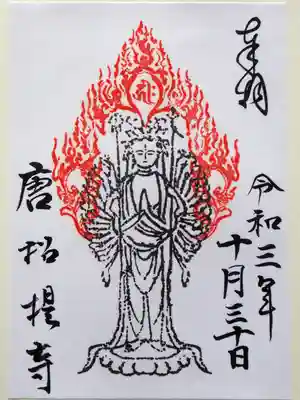 奉拝
令和三年
十月三十日
唐招提寺